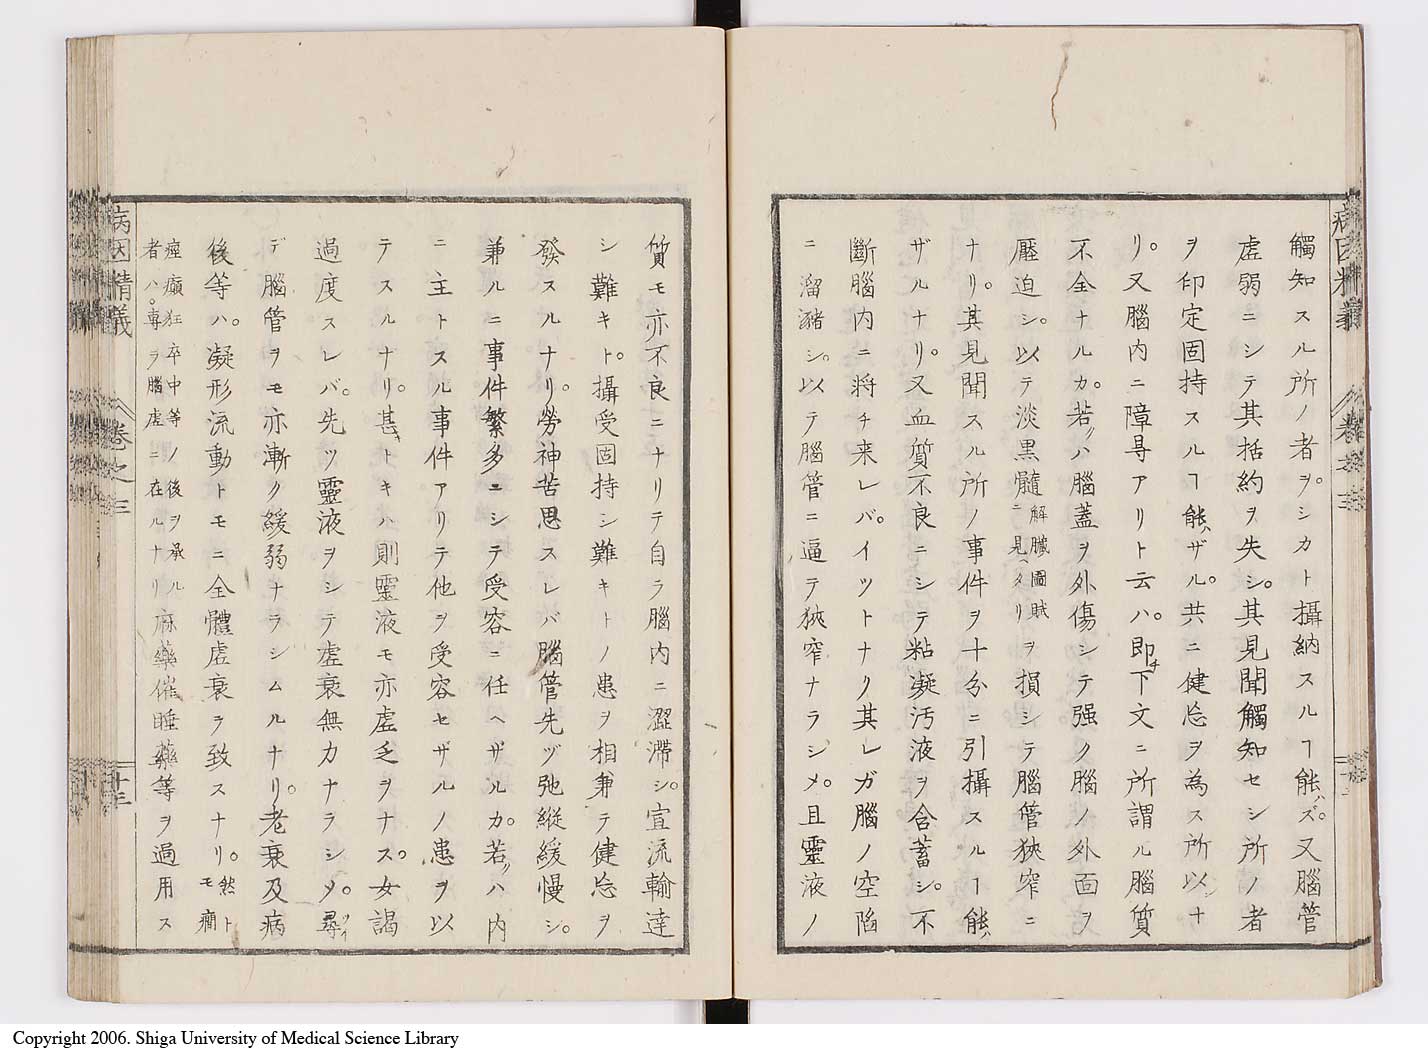 觸知スル所ノ者ヲ。シカト攝納スルヿ能ハズ。又腦管
虚弱ニシテ其括約ヲ失シ。其見聞觸知セシ所ノ者
ヲ印定固持スルヿ能ハザル。共ニ健忘ヲ為ス所以ナ
リ。又腦内ニ障㝵アリト云ハ。即チ下文ニ所謂ル腦質
不全ナルカ。若クハ腦蓋ヲ外傷シテ强ク腦ノ外面ヲ
壓迫シ。以テ淡黒髓解臓圖賦ニ見ヘタリヲ損シテ腦管狹窄ニ
ナリ。其見聞スル所ノ事件ヲ十分ニ引攝スルヿ能ハ
ザルナリ。又血質不良ニシテ粘凝汚液ヲ含蓄シ。不
斷腦内ニ将チ来レバ。イツトナク其レガ腦ノ空陷
ニ溜瀦シ。以テ腦管ニ逼テ狹窄ナラシメ。且靈液ノ
質モ亦不良ニナリテ自ラ腦内ニ澀滯シ。宣流輸達
シ難キト。攝受固持シ難キトノ患ヲ相兼テ健忘ヲ
發スルナリ。勞神苦思スレバ腦管先ヅ弛縱緩慢シ。
兼ルニ事件繁多ニシテ受容ニ任ヘザルカ。若クハ内
ニ主トスル事件アリテ他ヲ受容セザルノ患ヲ以
テスルナリ。甚キトキハ則靈液モ亦虚乏ヲナス。女謁
過度スレバ。先ツ靈液ヲシテ虚衰無力ナラシメ。尋イ
デ腦管ヲモ亦漸ク緩弱ナラシムルナリ。老衰及病
後等ハ。凝形流動トモニ全體虚衰ヲ致スナリ。然トモ癎
痙癲狂卒中等ノ後ヲ承ル者ハ。專ヲ腦虚ニ在ルナリ麻藥催睡藥等ヲ過用ス
病因精義
卷之三
十三